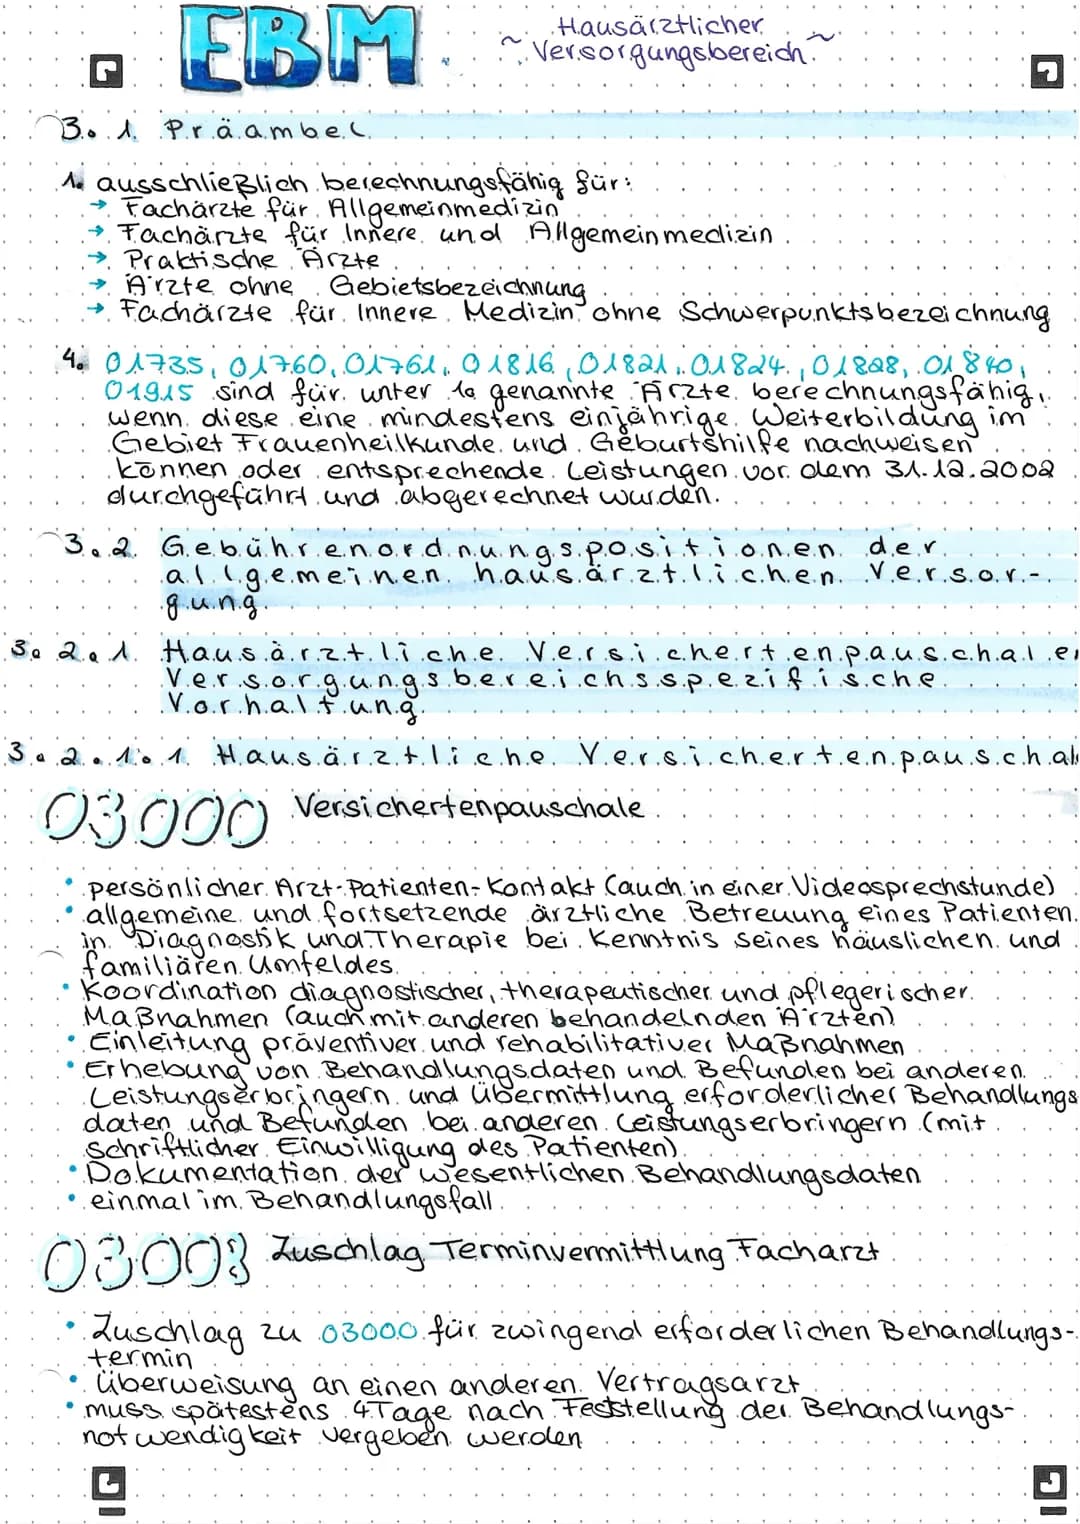 EBM
~ Hausärztlicher
Versorgungsbereich ~
3.1. Präambel
1. ausschließlich berechnungsfähig für:
→ Fachärzte für Allgemeinmedizin
→ Fachärzte für Innere und Allgemeinmedizin
→ Praktische Ärzte
→ Ärzte ohne Gebietsbezeichnung
→ Fachärzte für Innere Medizin ohne Schwerpunktsbezeichnung
4. 01735, 01760, 01761, 01816, 01821, 01824, 01828, 01840,
01915 sind für unter 1. genannte Ärzte berechnungsfähig,
wenn diese eine mindestens einjährige Weiterbildung im
Gebiet Frauenheilkunde und Geburtshilfe nachweisen
können oder entsprechende Leistungen vor dem 31.12.2002
durchgeführt und abgerechnet wurden.
3.2. Gebührenordnungspositionen der
allgemeinen hausärztlichen Versor-
gung
3.2.1. Hausärztliche Versichertenpauschale,
Versorgungsbereichsspezifische
Vorhaltung
3.2.1.1. Hausärztliche Versichertenpauschale
03000 Versichertenpauschale
• persönlicher Arzt-Patienten-Kontakt (auch in einer Videosprechstunde)
• allgemeine und fortsetzende ärztliche Betreuung eines Patienten
in Diagnostik und Therapie bei Kenntnis seines häuslichen und
familiären Umfeldes
• Koordination diagnostischer, therapeutischer und pflegerischer
Maßnahmen (auch mit anderen behandelnden Ärzten)
• Einleitung präventiver und rehabilitativer Maßnahmen
• Erhebung von Behandlungsdaten und Befunden bei anderen
Leistungserbringern und Übermittlung erforderlicher Behandlungs
daten und Befunden bei anderen Leistungserbringern (mit
schriftlicher Einwilligung des Patienten)
• Dokumentation der wesentlichen Behandlungsdaten
• einmal im Behandlungsfall
03008 Zuschlag Terminvermittlung Facharzt
• Zuschlag zu 03000 für zwingend erforderlichen Behandlungs-
termin
• Überweisung an einen anderen Vertragsarzt
• muss spätestens 4 Tage nach Feststellung der Behandlungs-
notwendigkeit vergeben werden